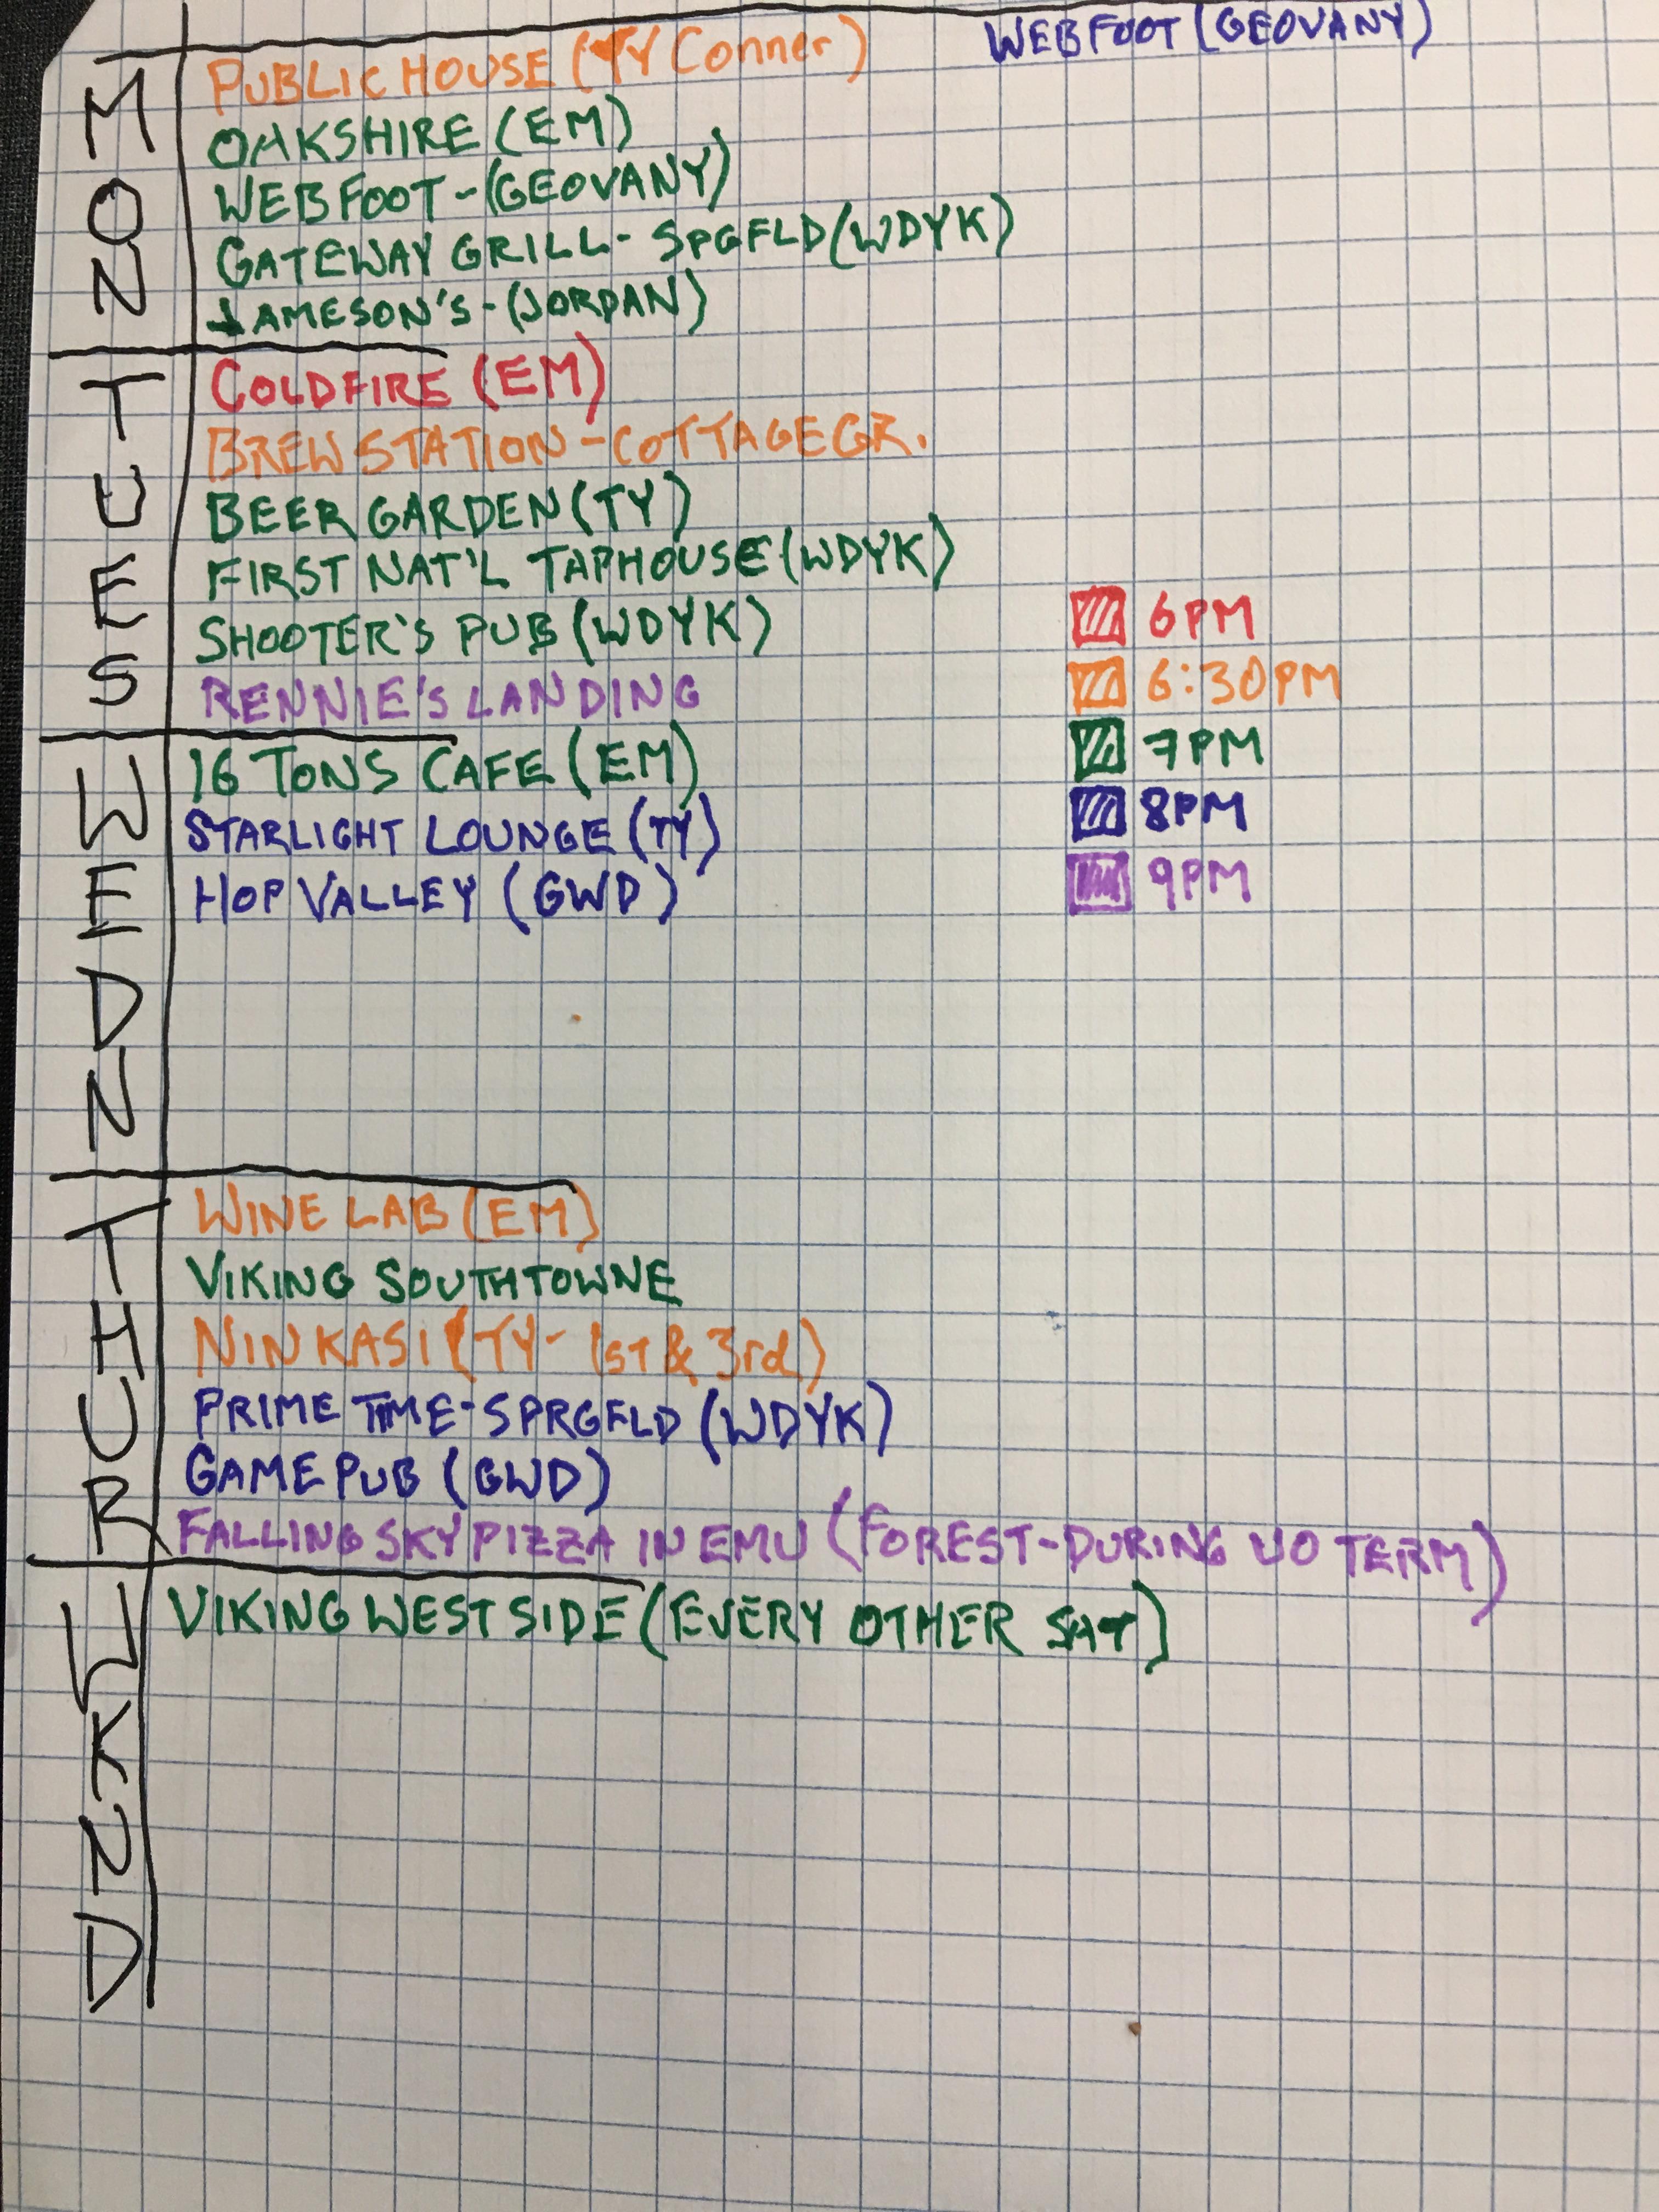 WEBFOOT (GEOVANY)
MON
PUBLIC HOUSE (TY Conner)
OAKSHIRE (EM)
WEBFOOT - (GEOVANY)
GATEWAY GRILL - SPGFLD (WDYK)
JAMESON'S - (JORDAN)
TUES
COLDFIRE (EM)
BREWSTATION - COTTAGE GR.
BEER GARDEN (TY)
FIRST NAT'L TAPHOUSE (WDYK)
SHOOTER'S PUB (WDYK)
RENNIE'S LANDING
6PM
6:30PM
7PM
8PM
9PM
WEDN
16 TONS CAFE (EM)
STARLIGHT LOUNGE (TY)
HOP VALLEY (GWD)
THUR
WINE LAB (EM)
VIKING SOUTHTOWNE
NINKASI (TY - 1ST & 3rd)
PRIME TIME - SPRGFLD (WDYK)
GAMEPUB (GWD)
FALLING SKY PIZZA IN EMU (FOREST - DURING UO TERM)
WKND
VIKING WESTSIDE (EVERY OTHER SAT)